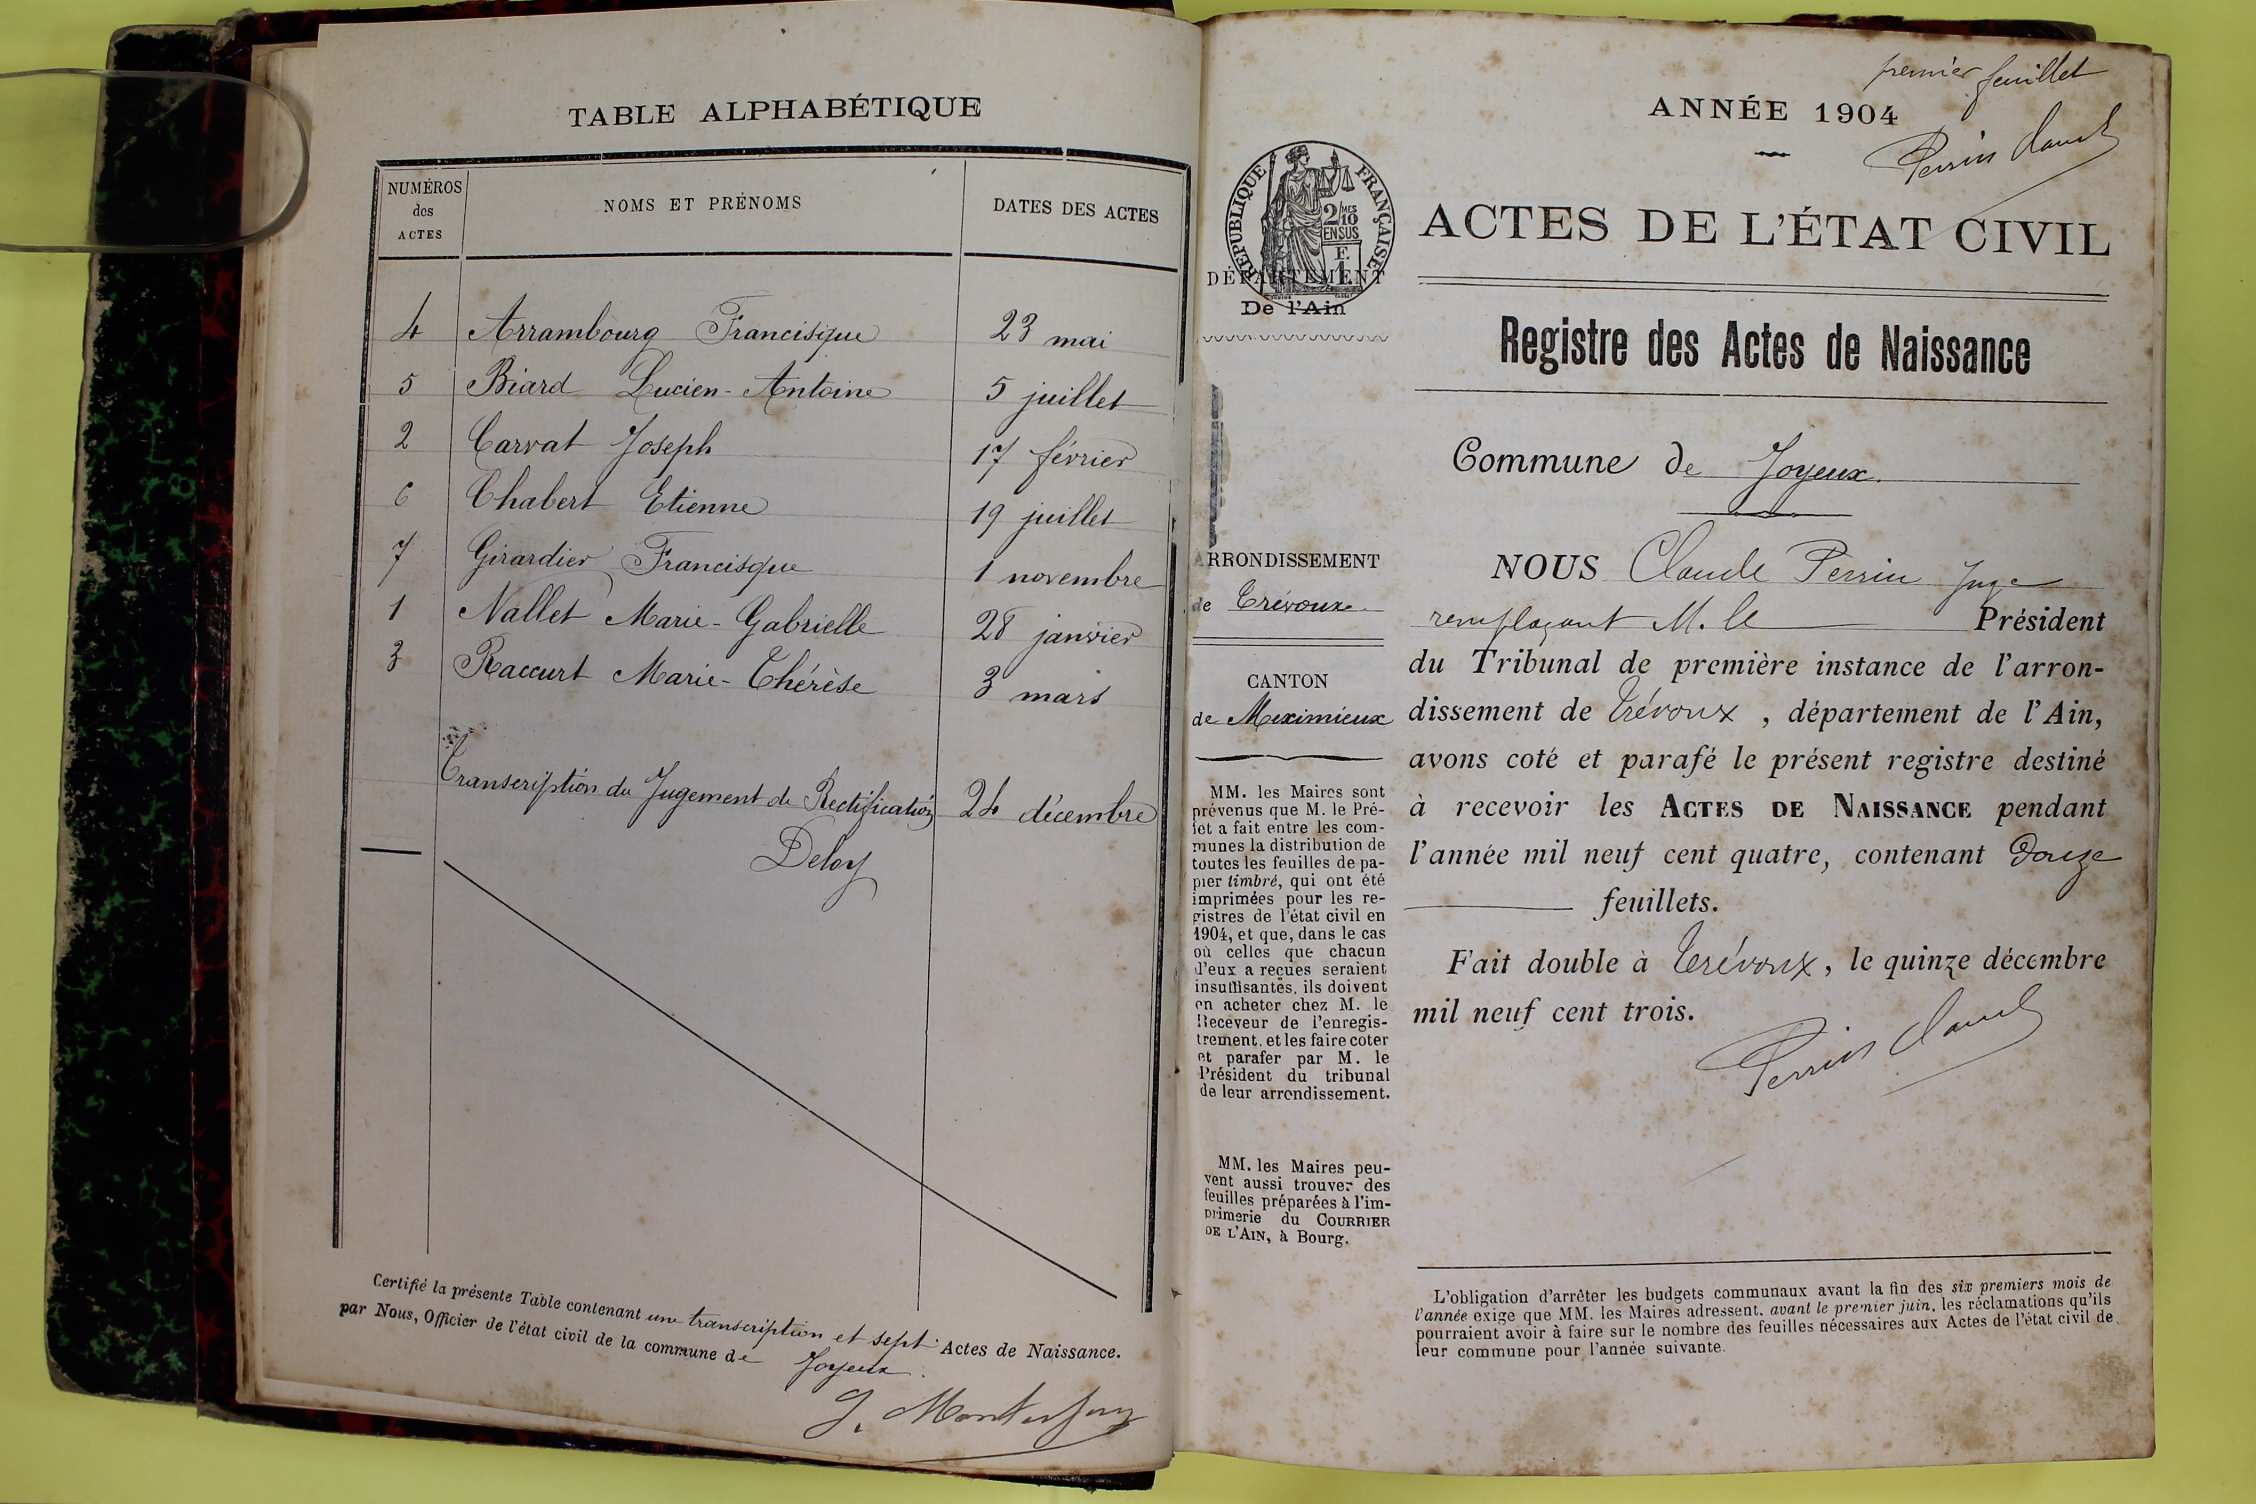 TABLE ALPHABÉTIQUE
NUMÉROS
des
ACTES
NOMS ET PRÉNOMS
DATES DES ACTES
4 Arrambourg Francisque 23 mai
5 Biard Lucien-Antoine 5 juillet
2 Carvat Joseph 17 février
6 Chabert Etienne 19 juillet
7 Girardier Francisque 1 novembre
1 Nallet Marie-Gabrielle 28 janvier
3 Raccurt Marie-Thérèse 3 mars
Transcription du Jugement de Rectification 24 décembre
Deloy
Certifié la présente Table contenant une transcription et sept Actes de Naissance.
par Nous, Officier de l'état civil de la commune de Joyeux.
premier feuillet
ANNÉE 1904
Perrin Claude
RÉPUBLIQUE FRANÇAISE
2/10
MES
EN SUS
DÉPARTEMENT
De l'Ain
ARRONDISSEMENT
de Trévoux
CANTON
de Meximieux
MM. les Maires sont
prévenus que M. le Pré-
fet a fait entre les com-
munes la distribution de
toutes les feuilles de pa-
pier timbré, qui ont été
imprimées pour les re-
gistres de l'état civil en
1904, et que, dans le cas
où celles que chacun
d'eux a reçues seraient
insuffisantes, ils doivent
en acheter chez M. le
Receveur de l'enregis-
trement, et les faire coter
et parafer par M. le
Président du tribunal
de leur arrondissement.
MM. les Maires peu-
vent aussi trouver des
feuilles préparées à l'im-
primerie du COURRIER
DE L'AIN, à Bourg.
ACTES DE L'ÉTAT CIVIL
Registre des Actes de Naissance
Commune de Joyeux.
NOUS Claude Perrin Juge
remplaçant M. le Président
du Tribunal de première instance de l'arron-
dissement de Trévoux, département de l'Ain,
avons coté et parafé le présent registre destiné
à recevoir les ACTES DE NAISSANCE pendant
l'année mil neuf cent quatre, contenant Douze
feuillets.
Fait double à Trévoux, le quinze décembre
mil neuf cent trois.
Perrin Claude
L'obligation d'arrêter les budgets communaux avant la fin des six premiers mois de
l'année exige que MM. les Maires adressent, avant le premier juin, les réclamations qu'ils
pourraient avoir à faire sur le nombre des feuilles nécessaires aux Actes de l'état civil de
leur commune pour l'année suivante.